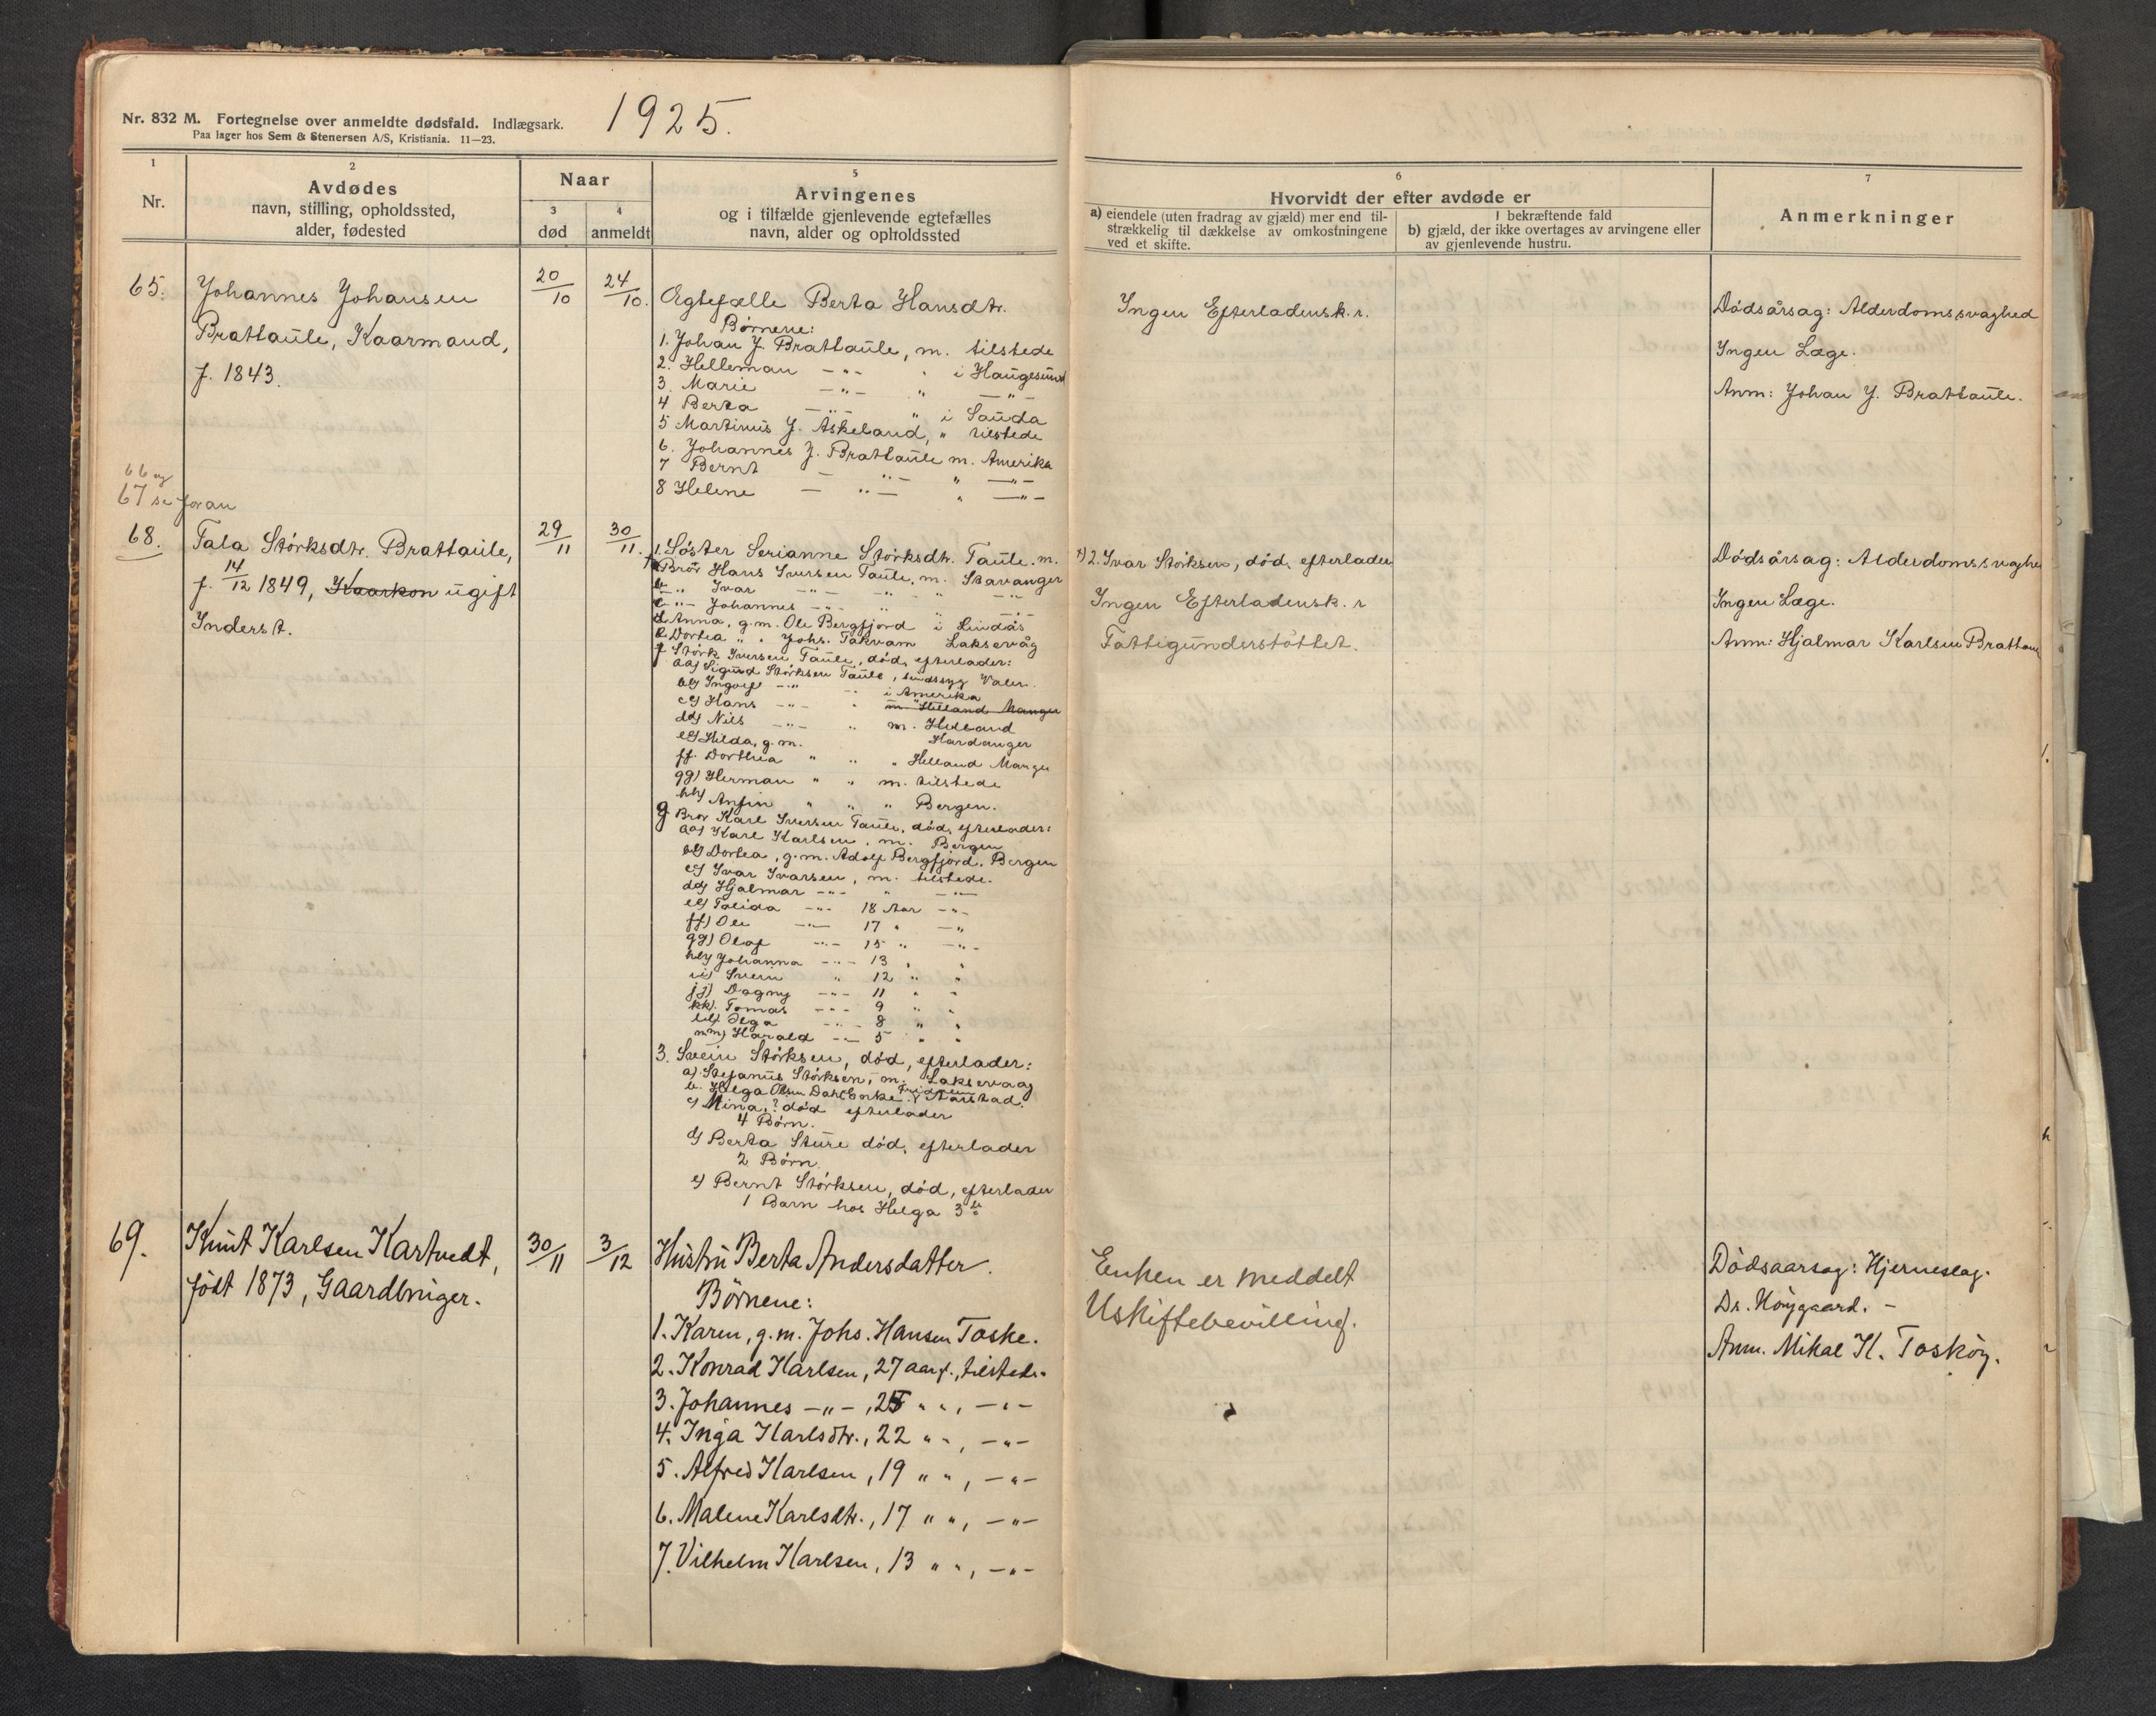 Nr. 832 M. Fortegnelse over anmeldte dødsfald. Indlægsark.
Paa lager hos Sem & Stenersen A/S, Kristiania. 11—23.
1925.
1
Nr.
2
Avdødes
navn, stilling, opholdssted,
alder, fødested
Naar
3
død
4
anmeldt
5
Arvingenes
og i tilfælde gjenlevende egtefælles
navn, alder og opholdssted
6
Hvorvidt der efter avdøde er
a) eiendele (uten fradrag av gjæld) mer end til-
strækkelig til dækkelse av omkostningene
ved et skifte.
I bekræftende fald
b) gjæld, der ikke overtages av arvingene eller
av gjenlevende hustru.
7
Anmerkninger
65.
Johannes Johansen
Brattaule, Kaarmand,
f. 1843.
20/10
24/10.
Egtefælle Berta Hansdtr.
Børnene:
1. Johan J. Brattaule, m. tilstede
2. Helleman —"— " i Haugesund
3. Marie —"— " —"—
4 Berta —"— " i Sauda
5 Martinus J. Askeland, " tilstede
6. Johannes J. Brattaule m. Amerika
7 Bernt — "— " —"—
8 Helene — "— " —"—
Ingen Efterladensk. r.
Dødsårsag: Alderdomssvaghed
Ingen Læge.
Anm: Johan J. Brattaule.
66 og
67 se foran
68.
Tala Størksdtr. Brattaule,
f. 14/12 1849, Kaarkon ugift
Inderst.
29/11
30/11.
1. Søster Serianne Størksdtr. Taule. m.
Bror Hans Iversen Taule, m. Stavanger
b —"— Ivar —"— —"— " —"—
c —"— Johannes —"— " " —"—
d Anna, g.m. Ole Bergfjord i Lindås
e Dortea " " Johs. Takvam Laksevåg
f Størk Iversen Taule, død, efterlader:
aa) Sigurd Størksen Taule, sindssyg Valen.
bb) Ingolf —"— " i Amerika
cc) Hans —"— " m. Helland Manger
dd) Nils —"— " m. Helland
ee) Hilda, g.m. Hardanger
ff. Dorthea " " " Helland Manger
gg) Herman " " m. tilstede
hh) Anfin " " " Bergen.
g Bror Karl Iversen Taule, død, efterlader:
aa) Karl Karlsen, m. Bergen
bb) Dortea, g.m. Adolf Bergfjord, Bergen
cc) Ivar Ivarsen, m. tilstede.
dd) Hjalmar —"— " —"—
ee) Talida —"— 18 Aar —"—
ff) Ole —"— 17 " —"
gg) Olaf —"— 15 " —"—
hh) Johanna —"— 13 " "
ii) Svein " 12 " "
jj) Dagny —"— 11 " "
kk). Tomas —"— 9 " "
ll). Olga —"— 8 " "
mm) Harald —"— 5 " "
3. Svein Størksen, død, efterlader:
a). Stefanus Størksen, m. Laksevaag
b. Helga Olsen Dahl Enke
c) Mina, ? død efterlader
4 Børn.
d) Berta Sture død, efterlader
2 Børn.
e) Bernt Størksen, død, efterlader
1 Barn hos Helga 3 b
2. Ivar Størksen, død, efterlader
Ingen Efterladensk. r
Fattigunderstøttet.
Dødsårsag: Alderdomssvaghe
Ingen Læge.
Anm: Hjalmar Karlsen Brattaul
69.
Knut Karlsen Kartvedt,
født 1873, Gaardbruger.
30/11
3/12
Hustru Berta Andersdatter.
Børnene:
1. Karen, g.m. Johs. Hansen Toske.
2. Konrad Karlsen, 27 aar g., tilstede.
3. Johannes —"—, 25 " ", —"—
4. Inga Karlsdtr., 22 " ", —"—
5. Alfred Karlsen, 19 " ", —"—
6. Malene Karlsdtr., 17 " ", —"—
7. Vilhelm Karlsen, 13 " ", —"—
Enken er meddelt
Uskiftebevilling.
Dødsaarsag: Hjerneslag.
Dr. Høygaard. —
Anm. Mikal K. Toskøy.